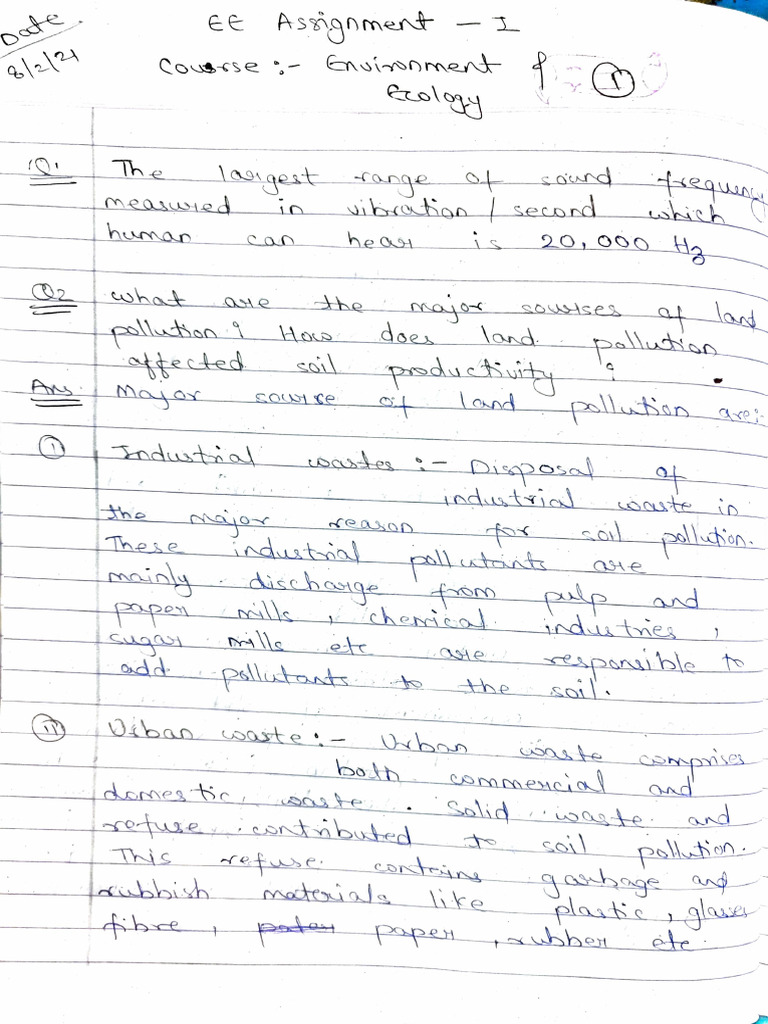 Date.
8/2/21
EE Assignment - I
Course :- Environment &
Ecology
1
Q1 The largest range of sound frequency
measured in vibration / second which
human can hear is 20,000 Hz
Q2 what are the major sourses of land
pollution ? How does land pollution
affected soil productivity ?
Ans. Major sourse of land pollution are:-
(i) Industrial wastes :- Disposal of
industrial waste in
the major reason for soil pollution.
These industrial pollutants are
mainly discharge from pulp and
paper mills , chemical industries ,
sugar mills etc are responsible to
add pollutants to the soil.
(ii) Urban waste :- Urban waste comprises
both commercial and
domestic waste . Solid waste and
refuse contributed to soil pollution.
This refuse contains garbage and
rubbish materials like plastic , glasses
fibre , paper , rubber etc.